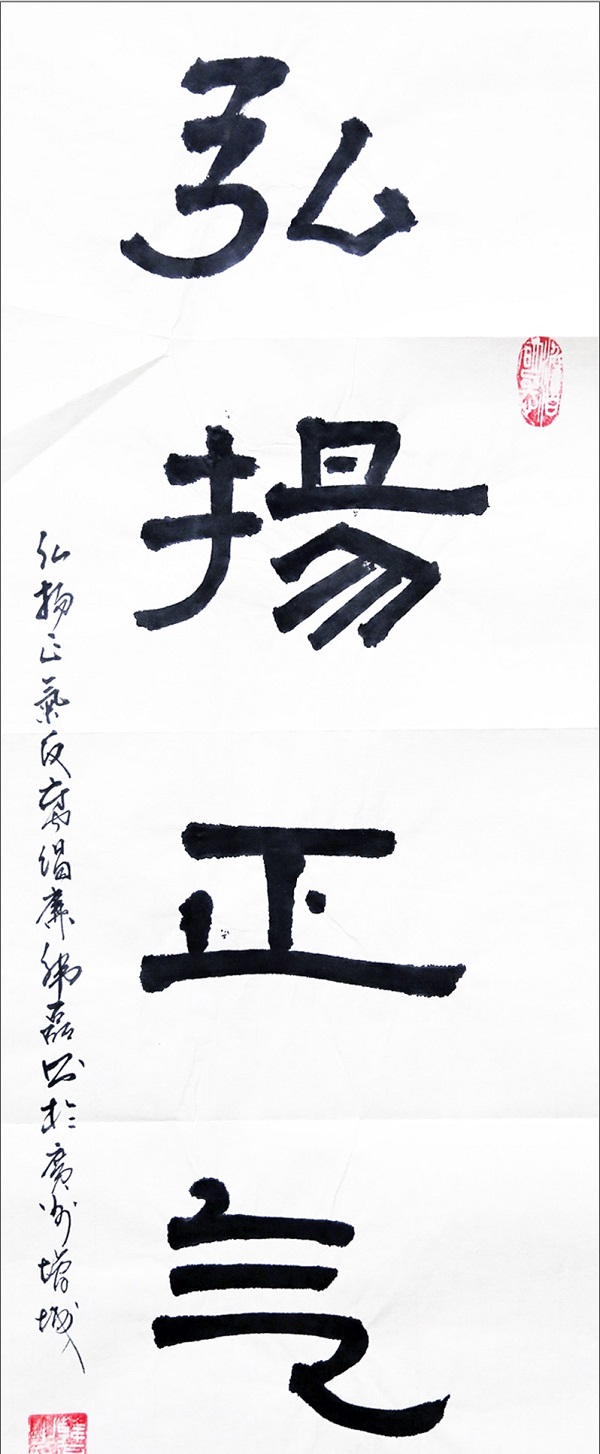 弘揚正气
弘揚正氣反腐倡廉韩磊书於廣州增城